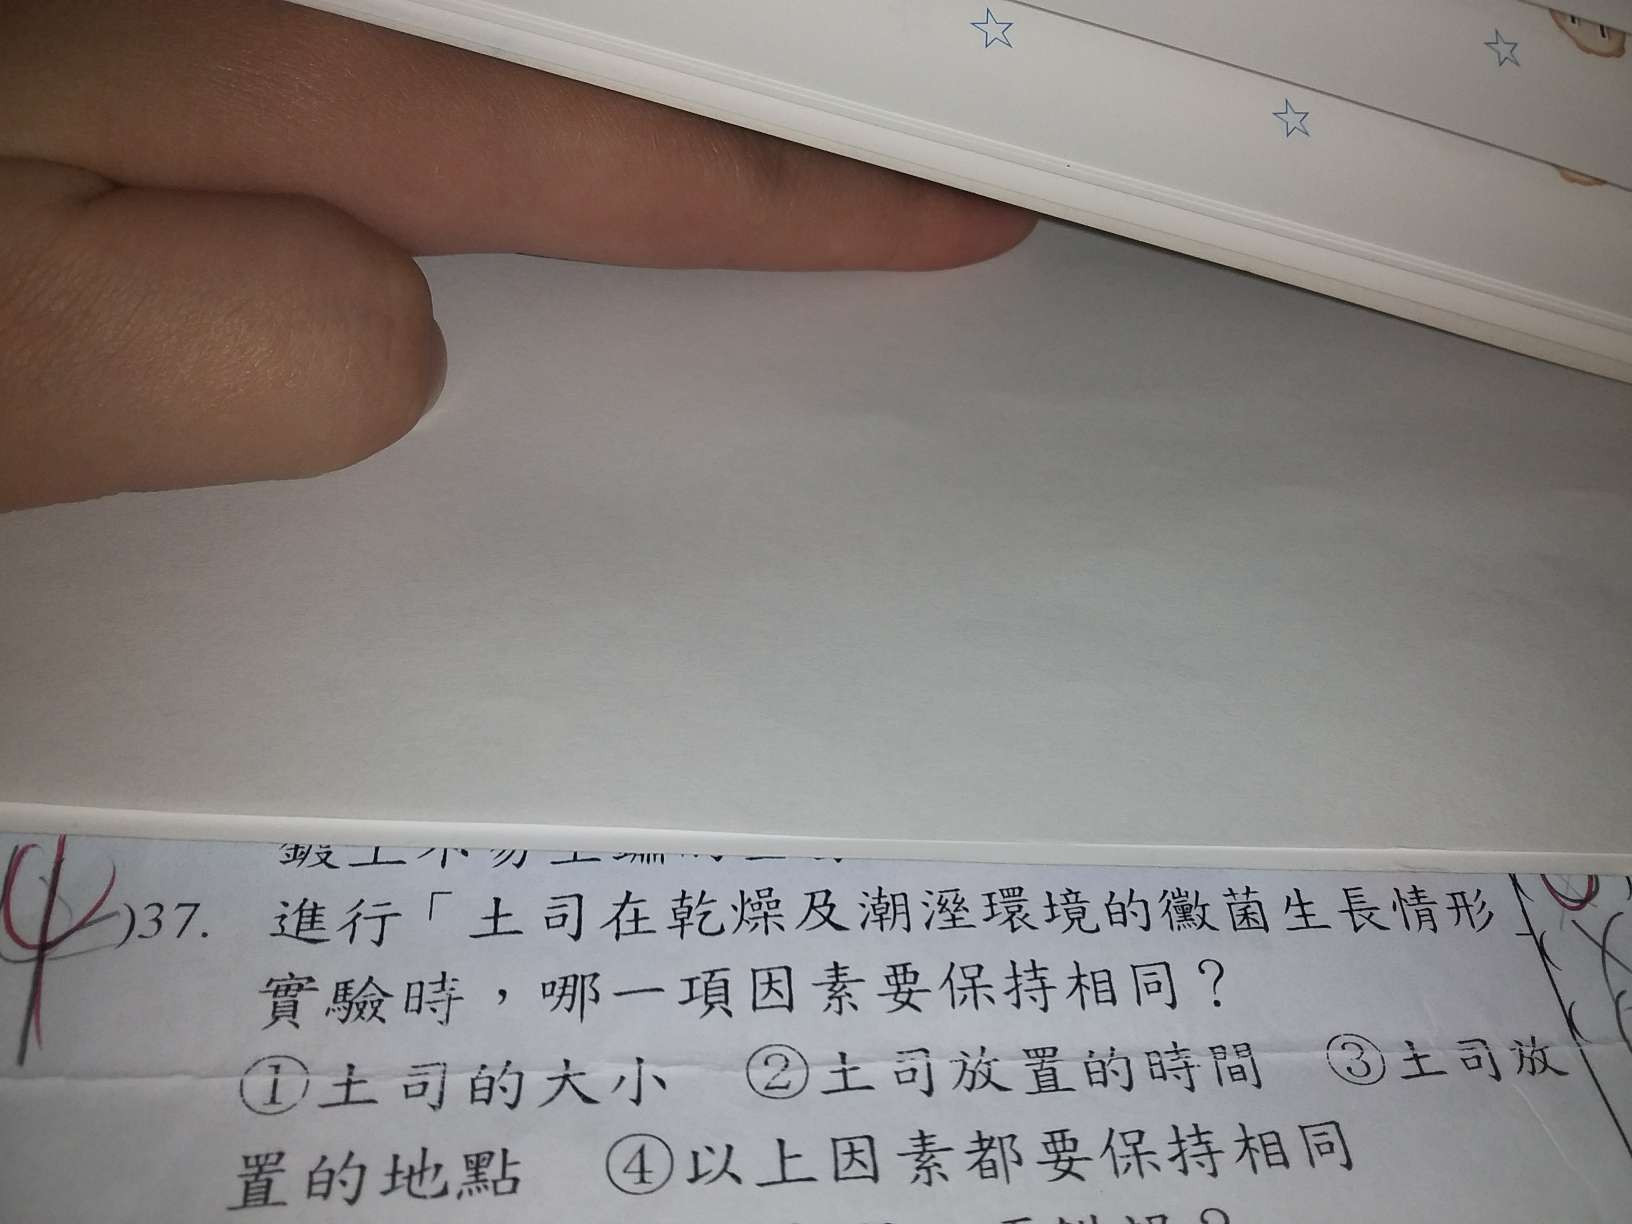 )37. 進行「土司在乾燥及潮溼環境的黴菌生長情形」
實驗時，哪一項因素要保持相同？
①土司的大小 ②土司放置的時間 ③土司放
置的地點 ④以上因素都要保持相同